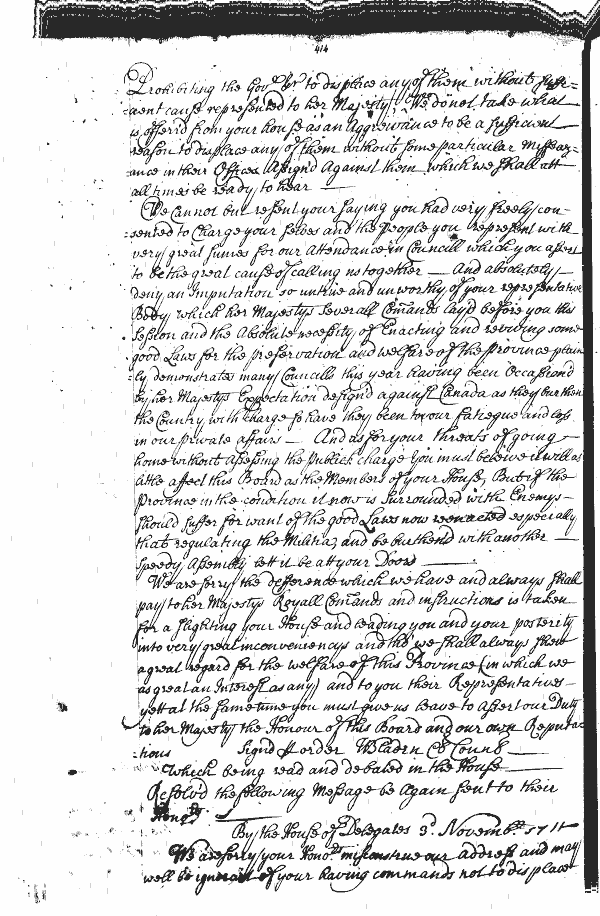 414
Prohibiting the Govr &c to displace any of them without suffi=
=cient cause represented to her Majesty. We do not take what
is offer'd from your house as an Aggrievance to be a sufficient
reason to displace any of them without some particular missbay=
ance in their Offices Assign'd Against them which we shall att
all times be ready to hear —
We cannot but resent your saying you had very freely con=
=sented to Charge your selves and the people you represent with
very great summs for our Attendance in Councill which you assert
to be the great cause of calling us together — And absolutely
deny an Imputation so untrue and unworthy of your representative
Body which her Majestys Severall Comands lay'd before you this
Session and the Absolute necessity of Enacting and reviving some
good Laws for the preservation and welfare of the Province plain
=ly demonstrates many Councills this year having been Occasiond
by her Majestys Expectation design'd against Canada as they burthen
the Country with charge so have they been to our fateague and loss
in our private affairs — And as for your threats of going
home without Assessing the Publick charge you must beleive it will as
little affect this Board as the Members of your House, But if the
Province in the condition it now is Surrounded with Enemys
should suffer for want of the good Laws now reenacted especially
that regulating the Militia, and be burthend with another
speedy Assembly lett it be att your Doors
We are sorry the defference which we have and always shall
pay to her Majestys Royall Comands and instructions is taken
for a slighting your House and leading you and your posterity
into very great inconveniencys and tho' we shall always shew
a great regard for the welfare of this Province (in which we
as great an Interest as any) and to you their Representatives
yett at the same time you must give us leave to Assert our Duty
to her Majesty the Honour of this Board and our own Reputa=
=tions Sign'd p order W Bladen Cl Counc
Which being read and debated in the House
Resolv'd the following Message be Again sent to their
Honrs
By the House of Delegates 3d. Novembr 1711
We are sorry your Honrs misconstrue our address and may
well be ignorant of your having commands not to displace